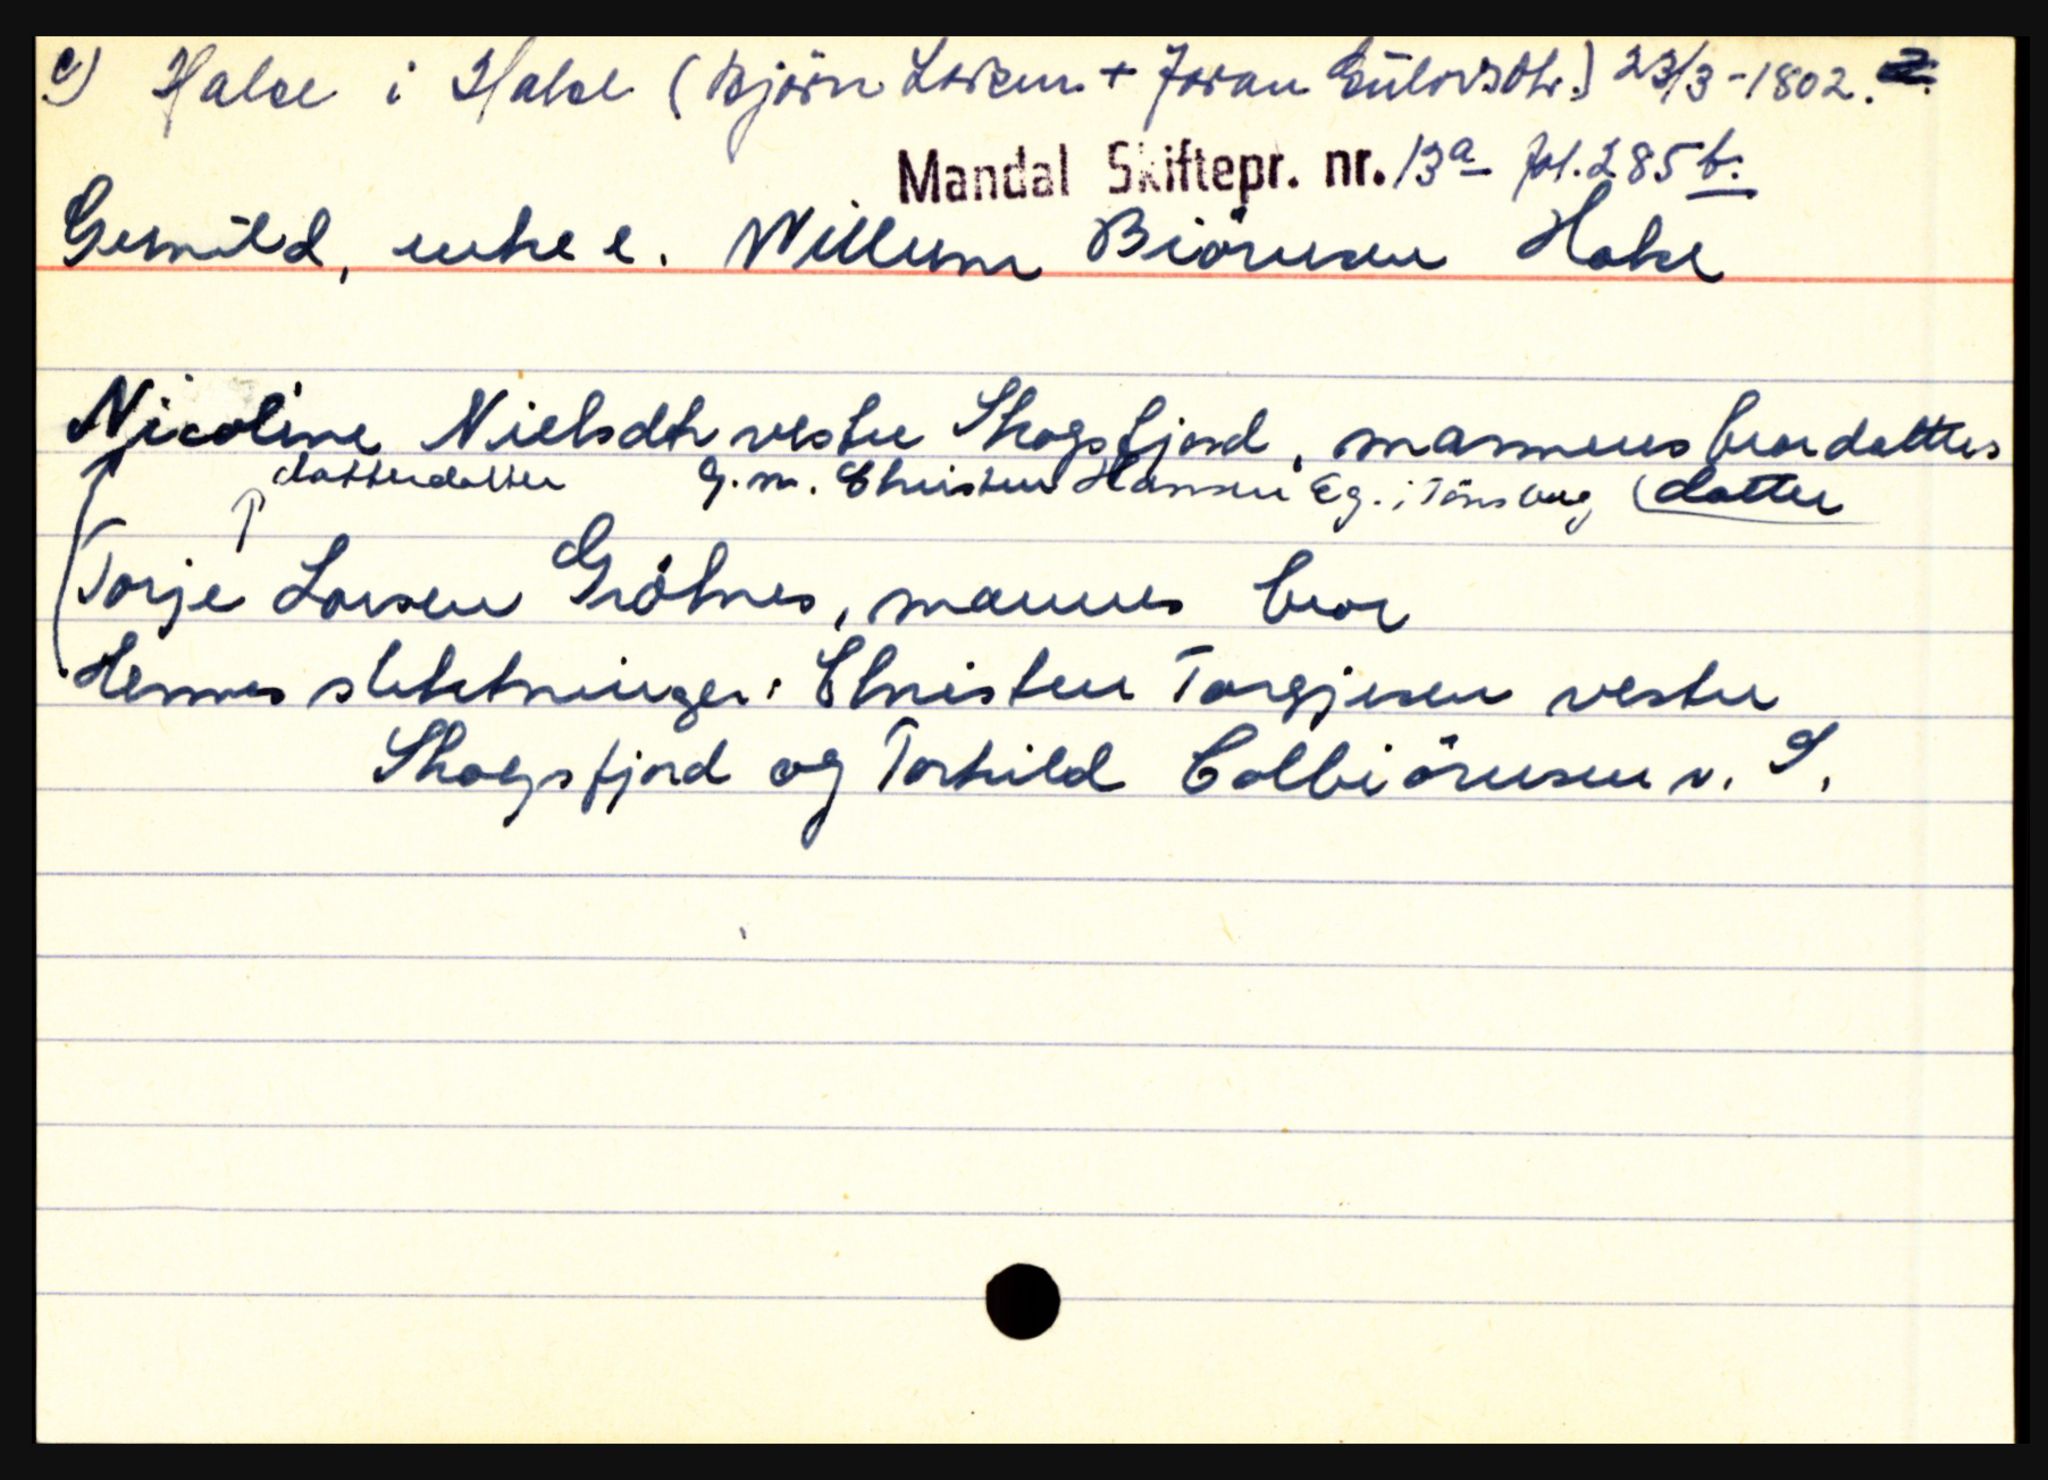 c) Halse i Halse (Bjørn Larsen + Joran Eulovsdtr.) 23/3-1802.
Mandal Skiftepr. nr. 13a fol. 285 b.
Gunnild, enke e. Willum Biørnsen Halse
Nicoline Nielsdtr vestre Skogsfjord, mannens brordatters datter
datterdatter g.m. Christen Hansen Eg. i Tønsberg
Torje Larsen Gråhnes, mannens bror
Hennes slektninger: Christen Torgjesen vestre
Skogsfjord og Torkild Colbiørnsen v. S.